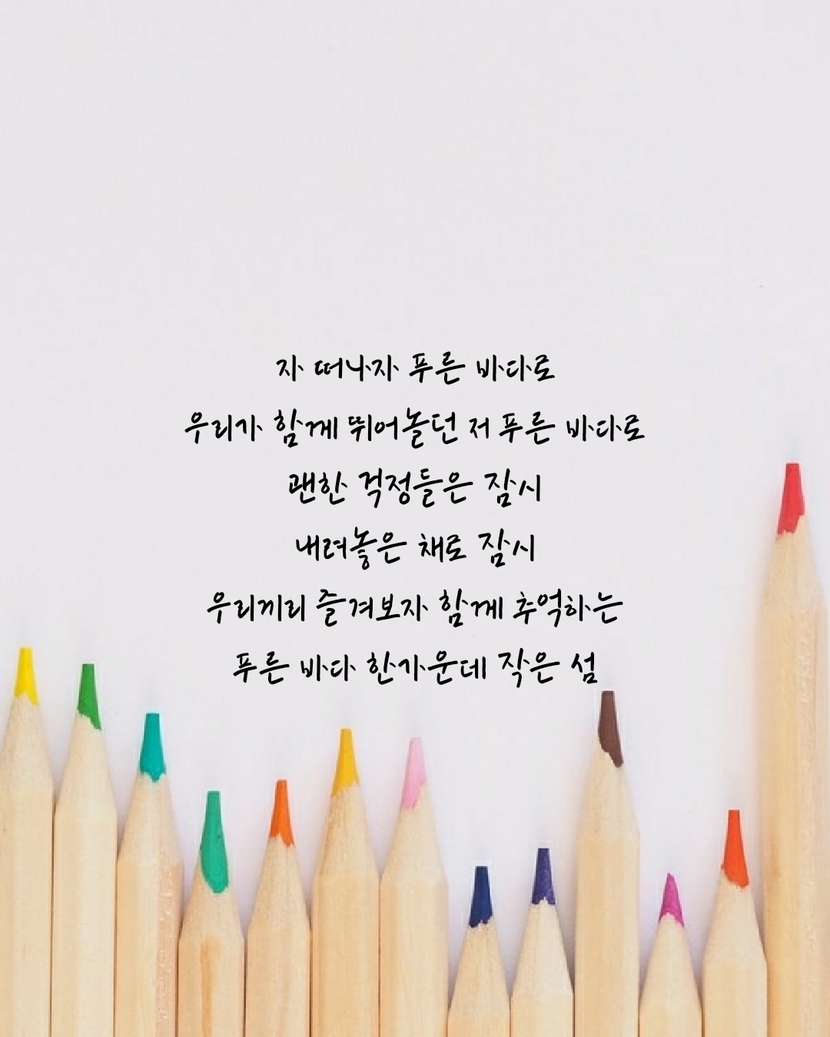 자 떠나자 푸른 바다로
우리가 함께 뛰어놀던 저 푸른 바다로
괜한 걱정들은 잠시
내려놓은 채로 잠시
우리끼리 즐겨보자 함께 추억하는
푸른 바다 한가운데 작은 섬